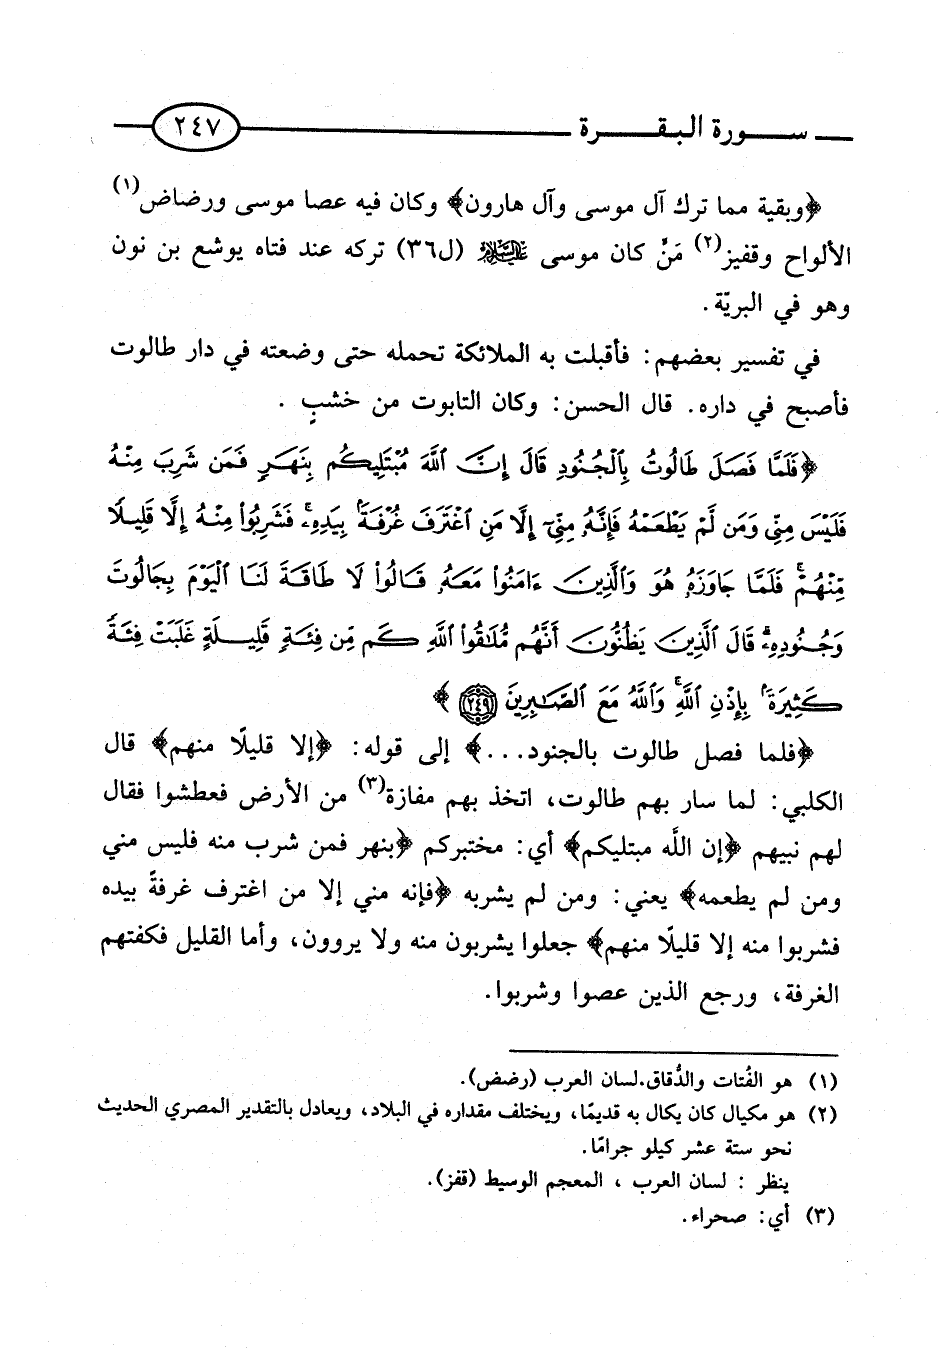 سورة البقرة ٢٤٧
﴿وبقية مما ترك آل موسى وآل هارون﴾ وكان فيه عصا موسى ورضاض(١)
الألواح وقفيز(٢) مَنٍّ كان موسى عليه السلام (ل٣٦) تركه عند فتاه يوشع بن نون
وهو في البريّة.
في تفسير بعضهم: فأقبلت به الملائكة تحمله حتى وضعته في دار طالوت
فأصبح في داره. قال الحسن: وكان التابوت من خشبٍ .
﴿فَلَمَّا فَصَلَ طَالُوتُ بِٱلْجُنُودِ قَالَ إِنَّ ٱللَّهَ مُبْتَلِيكُم بِنَهَرٍ فَمَن شَرِبَ مِنْهُ
فَلَيْسَ مِنِّى وَمَن لَّمْ يَطْعَمْهُ فَإِنَّهُۥ مِنِّىٓ إِلَّا مَنِ ٱغْتَرَفَ غُرْفَةًۢ بِيَدِهِۦۚ فَشَرِبُوا۟ مِنْهُ إِلَّا قَلِيلًا
مِّنْهُمْۚ فَلَمَّا جَاوَزَهُۥ هُوَ وَٱلَّذِينَ ءَامَنُوا۟ مَعَهُۥ قَالُوا۟ لَا طَاقَةَ لَنَا ٱلْيَوْمَ بِجَالُوتَ
وَجُنُودِهِۦۚ قَالَ ٱلَّذِينَ يَظُنُّونَ أَنَّهُم مُّلَٰقُوا۟ ٱللَّهِ كَم مِّن فِئَةٍ قَلِيلَةٍ غَلَبَتْ فِئَةً
كَثِيرَةًۢ بِإِذْنِ ٱللَّهِۗ وَٱللَّهُ مَعَ ٱلصَّٰبِرِينَ ٢٤٩ ﴾
﴿فلما فصل طالوت بالجنود...﴾ إلى قوله: ﴿إلا قليلًا منهم﴾ قال
الكلبي: لما سار بهم طالوت، اتخذ بهم مفازة(٣) من الأرض فعطشوا فقال
لهم نبيهم ﴿إن اللَّه مبتليكم﴾ أي: مختبركم ﴿بنهر فمن شرب منه فليس مني
ومن لم يطعمه﴾ يعني: ومن لم يشربه ﴿فإنه مني إلا من اغترف غرفةً بيده
فشربوا منه إلا قليلًا منهم﴾ جعلوا يشربون منه ولا يروون، وأما القليل فكفتهم
الغرفة، ورجع الذين عصوا وشربوا.
(١) هو الفُتات والدُّقاق.لسان العرب (رضض).
(٢) هو مكيال كان يكال به قديمًا، ويختلف مقداره في البلاد، ويعادل بالتقدير المصري الحديث
نحو ستة عشر كيلو جرامًا.
ينظر : لسان العرب ، المعجم الوسيط (قفز).
(٣) أي: صحراء.